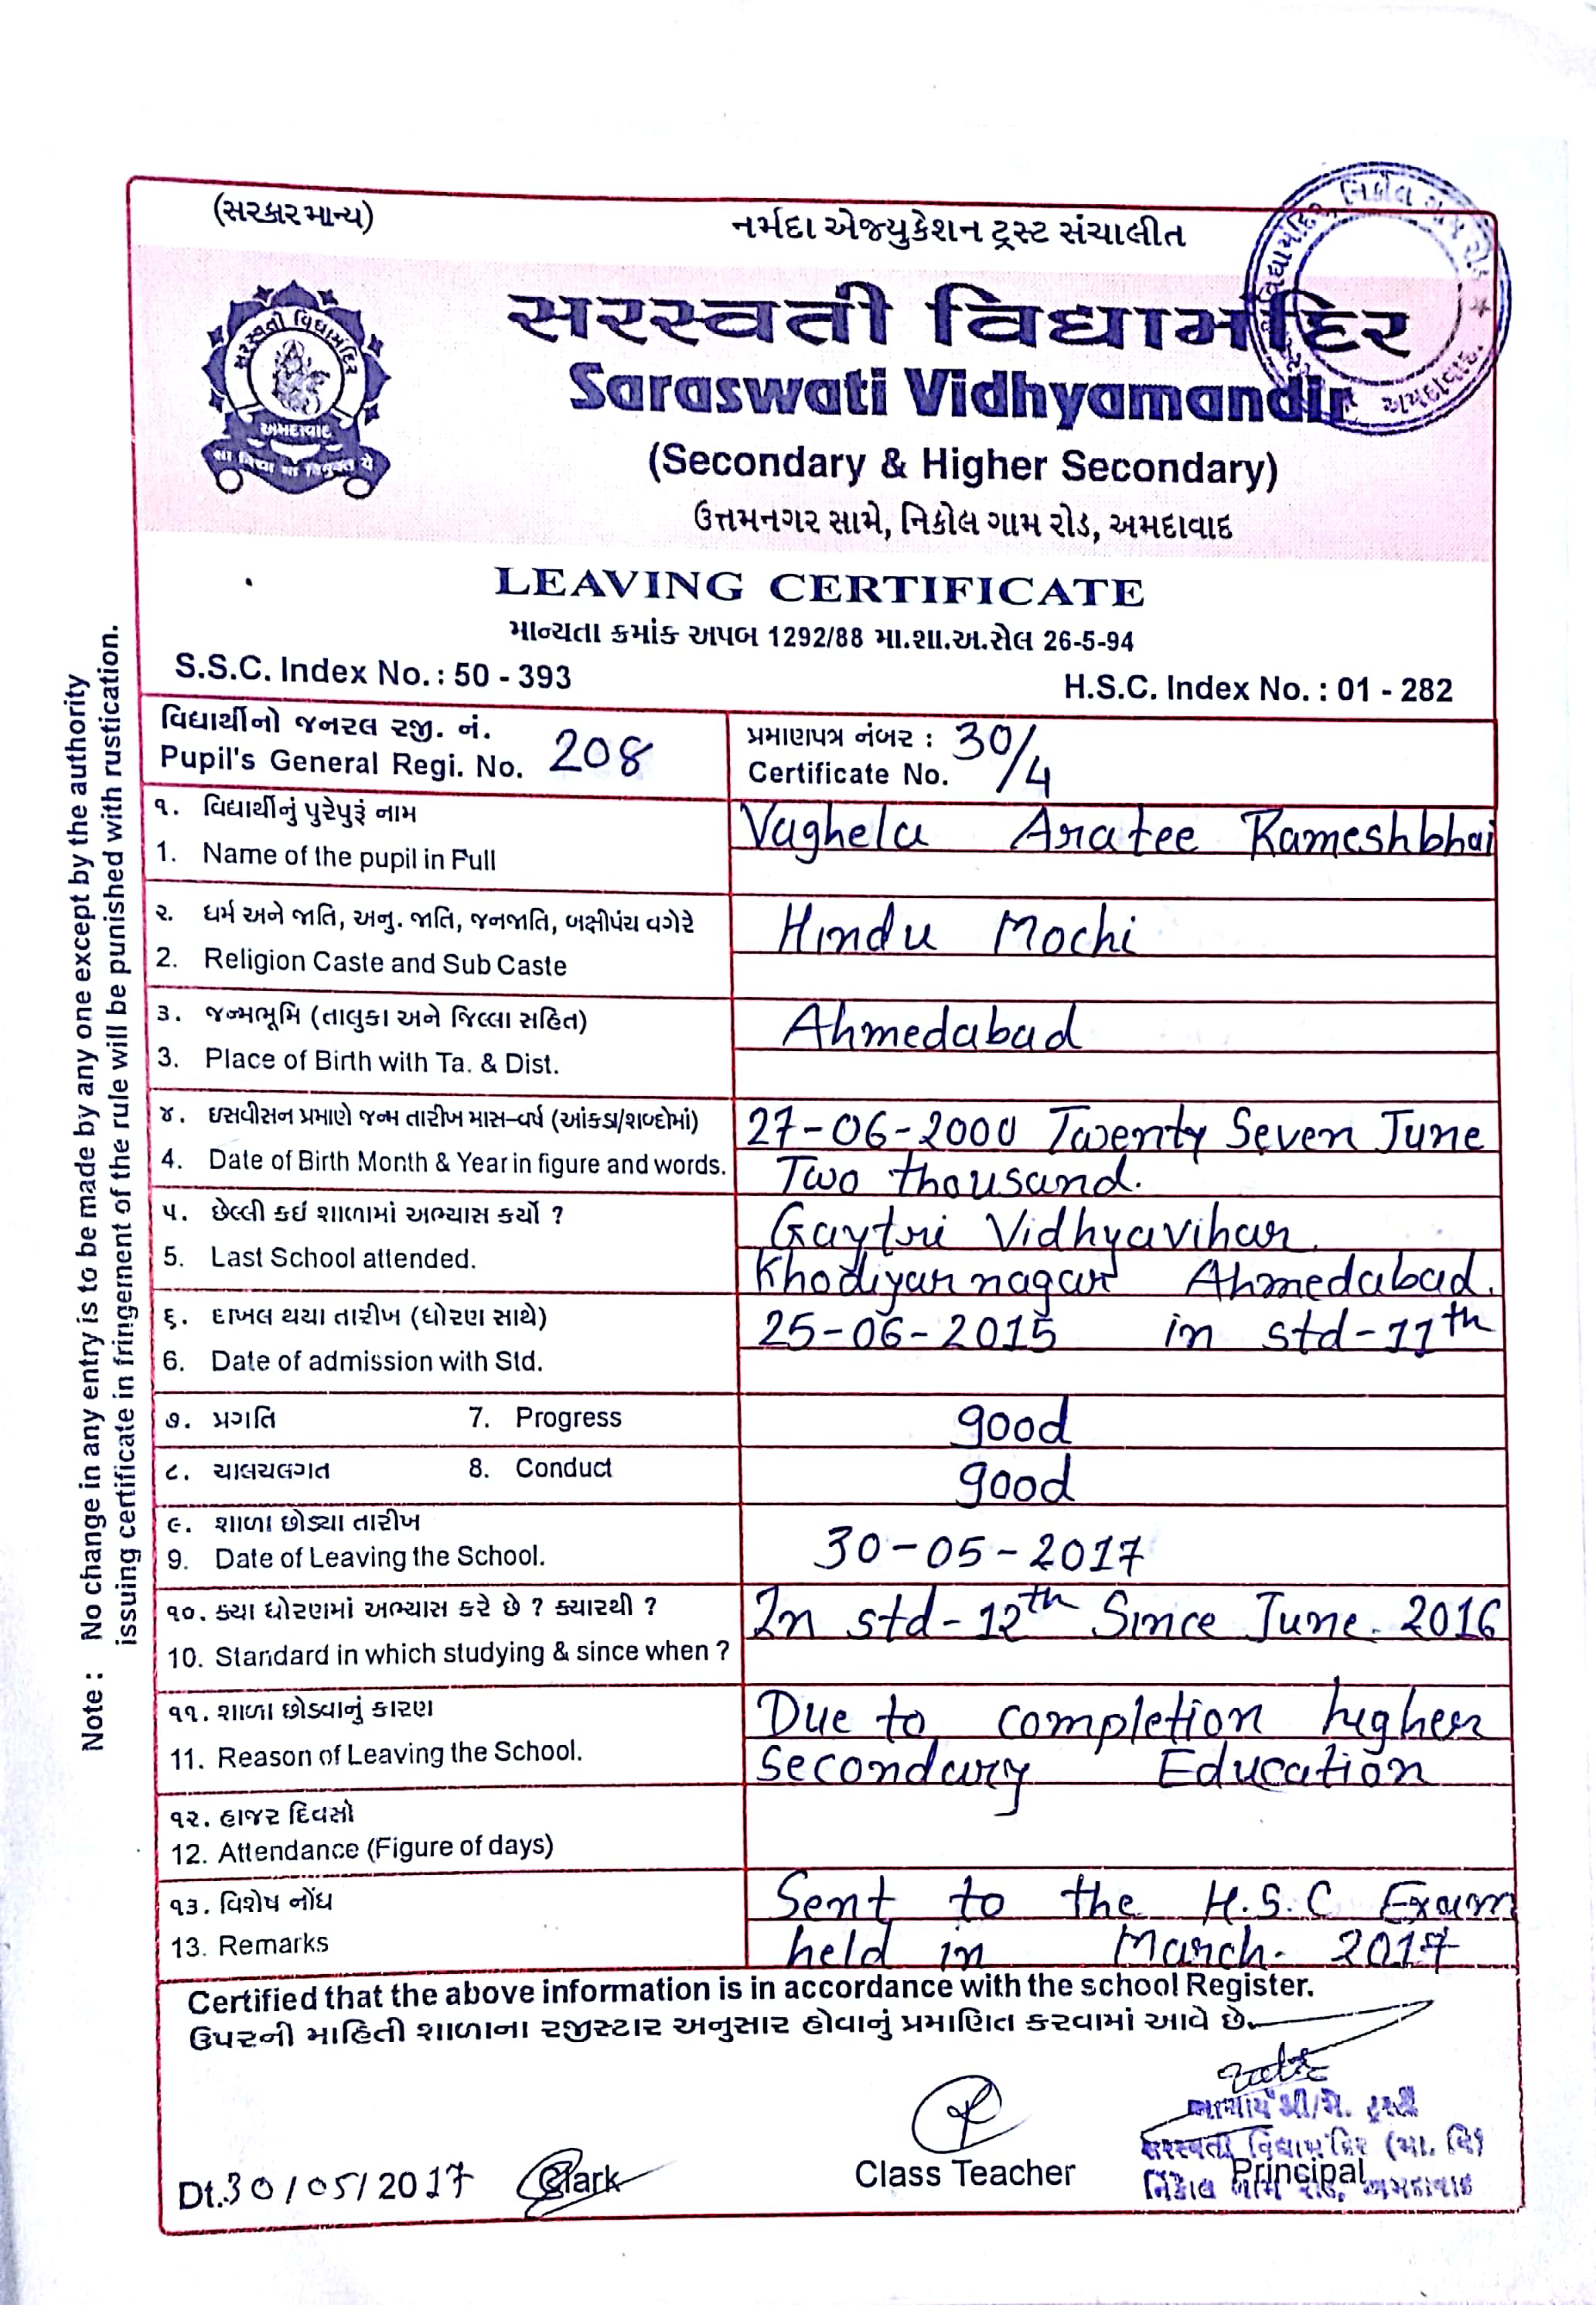 (સરકાર માન્ય)
નર્મદા એજ્યુકેશન ટ્રસ્ટ સંચાલીત
સરસ્વતી વિદ્યામંદિર
Saraswati Vidhyamandir
(Secondary & Higher Secondary)
ઉત્તમનગર સામે, નિકોલ ગામ રોડ, અમદાવાદ
સરસ્વતી વિદ્યામંદિર
અમદાવાદ
LEAVING CERTIFICATE
માન્યતા ક્રમાંક અપબ 1292/88 મા.શા.અ.સેલ 26-5-94
S.S.C. Index No. : 50 - 393
H.S.C. Index No. : 01 - 282
વિદ્યાર્થીનો જનરલ રજી. નં.
Pupil's General Regi. No. 208
પ્રમાણપત્ર નંબર : 30/4
Certificate No.
૧. વિદ્યાર્થીનું પુરેપુરૂં નામ
1. Name of the pupil in Full
Vaghela Aratee Rameshbhai
૨. ધર્મ અને જાતિ, અનુ. જાતિ, જનજાતિ, બક્ષીપંચ વગેરે
2. Religion Caste and Sub Caste
Hindu Mochi
૩. જન્મભૂમિ (તાલુકા અને જિલ્લા સહિત)
3. Place of Birth with Ta. & Dist.
Ahmedabad
૪. ઇસવીસન પ્રમાણે જન્મ તારીખ માસ-વર્ષ (આંકડા/શબ્દોમાં)
4. Date of Birth Month & Year in figure and words.
27-06-2000 Twenty Seven June
Two thousand.
૫. છેલ્લી કઇ શાળામાં અભ્યાસ કર્યો ?
5. Last School attended.
Gaytri Vidhyavihar
Khodiyarnagar Ahmedabad.
૬. દાખલ થયા તારીખ (ધોરણ સાથે)
6. Date of admission with Std.
25-06-2015 in std-11th
૭. પ્રગતિ 7. Progress
good
૮. ચાલચલગત 8. Conduct
good
૯. શાળા છોડ્યા તારીખ
9. Date of Leaving the School.
30-05-2017
૧૦. ક્યા ધોરણમાં અભ્યાસ કરે છે ? ક્યારથી ?
10. Standard in which studying & since when ?
In std-12th Since June. 2016
૧૧. શાળા છોડવાનું કારણ
11. Reason of Leaving the School.
Due to completion higher
Secondary Education
૧૨. હાજર દિવસો
12. Attendance (Figure of days)
૧૩. વિશેષ નોંધ
13. Remarks
Sent to the H.S.C Exam
held in March. 2017
Certified that the above information is in accordance with the school Register.
ઉપરની માહિતી શાળાના રજીસ્ટાર અનુસાર હોવાનું પ્રમાણિત કરવામાં આવે છે.
આચાર્યશ્રી/મે. ટ્રસ્ટી
સરસ્વતી વિદ્યામંદિર (મા. વિ)
નિકોલ ગામ રોડ, અમદાવાદ
Dt. 30/05/2017
Clark
Class Teacher
Principal
Note : No change in any entry is to be made by any one except by the authority
issuing certificate in fringement of the rule will be punished with rustication.